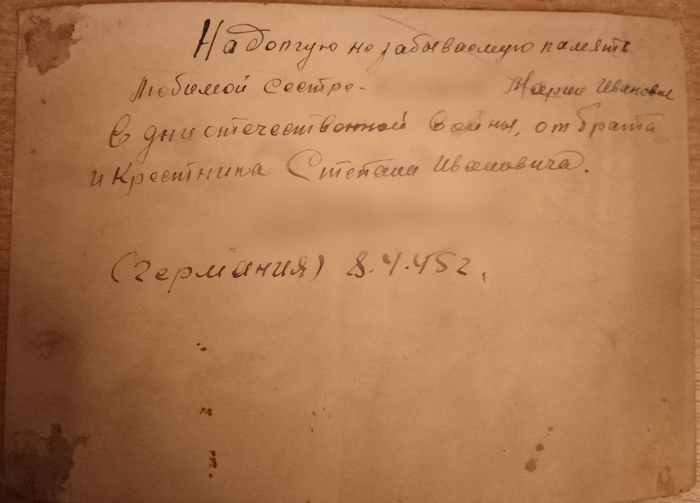 На долгую не забываемую память
Любимой сестре - Марии Ивановне
В дни отечественной войны, от брата
и Крестника Степана Ивановича.
(Германия) 8.4.45 г.